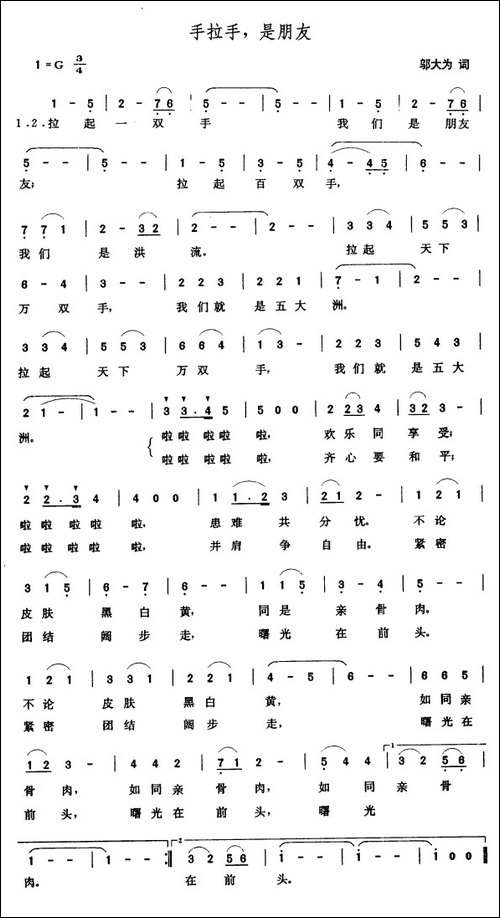 手拉手，是朋友
1=G 3/4 邬大为 词
1 - 5 | 2 - 76 | 5 - - | 5 - - | 1 - 5 | 2 - 76 |
1.2.拉 起 一 双 手 我 们 是 朋友
5 - - | 5 - - | 1 - 5 | 3 - 5 | 4 - 45 | 6 - - |
友； 拉 起 百 双 手，
7 7 1 | 2 - 32 | 2 - - | 2 - - | 3 3 4 | 5 5 3 |
我 们 是 洪 流。 拉起 天下
6 - 4 | 3 - - | 2 2 3 | 2 2 1 | 7 - 1 | 2 - - |
万 双 手， 我 们 就 是 五 大 洲。
3 3 4 | 5 5 3 | 6 6 4 | 1 3 - | 2 2 3 | 5 4 3 |
拉起 天下 万双 手， 我们就 是五大
2 1 - | 1 - - | 3 3.4 5 | 5 0 0 | 2 23 4 | 32 3 - |
洲。 啦 啦 啦 啦 啦， 欢 乐 同 享 受；
啦 啦 啦 啦 啦， 齐 心 要 和 平；
2 2.3 4 | 4 0 0 | 1 1.2 3 | 21 2 - | 1 2 1 |
啦 啦 啦 啦 啦， 患 难 共 分 忧。 不论
啦 啦 啦 啦 啦， 并 肩 争 自 由。 紧密
3 1 5 | 6 - 7 | 6 - - | 1 1 5 | 3 - 4 | 5 - - |
皮肤 黑 白 黄， 同是 亲 骨 肉，
团结 阔 步 走， 曙光 在 前 头。
1 2 1 | 3 3 1 | 2 2 1 | 4 - 5 | 6 - - | 6 6 5 |
不论 皮肤 黑白 黄， 如同亲
紧密 团结 阔步 走， 曙光在
12 3 - | 4 4 2 | 71 2 - | 5 4 4 | 3 2 56 |
骨 肉， 如同亲 骨 肉， 如 同 亲 骨
前 头， 曙光在 前 头， 曙 光
1 - - | 1 - - :| 32 56 | 1 - - | 1 - - | 1 0 0 ||
肉。 在 前 头。